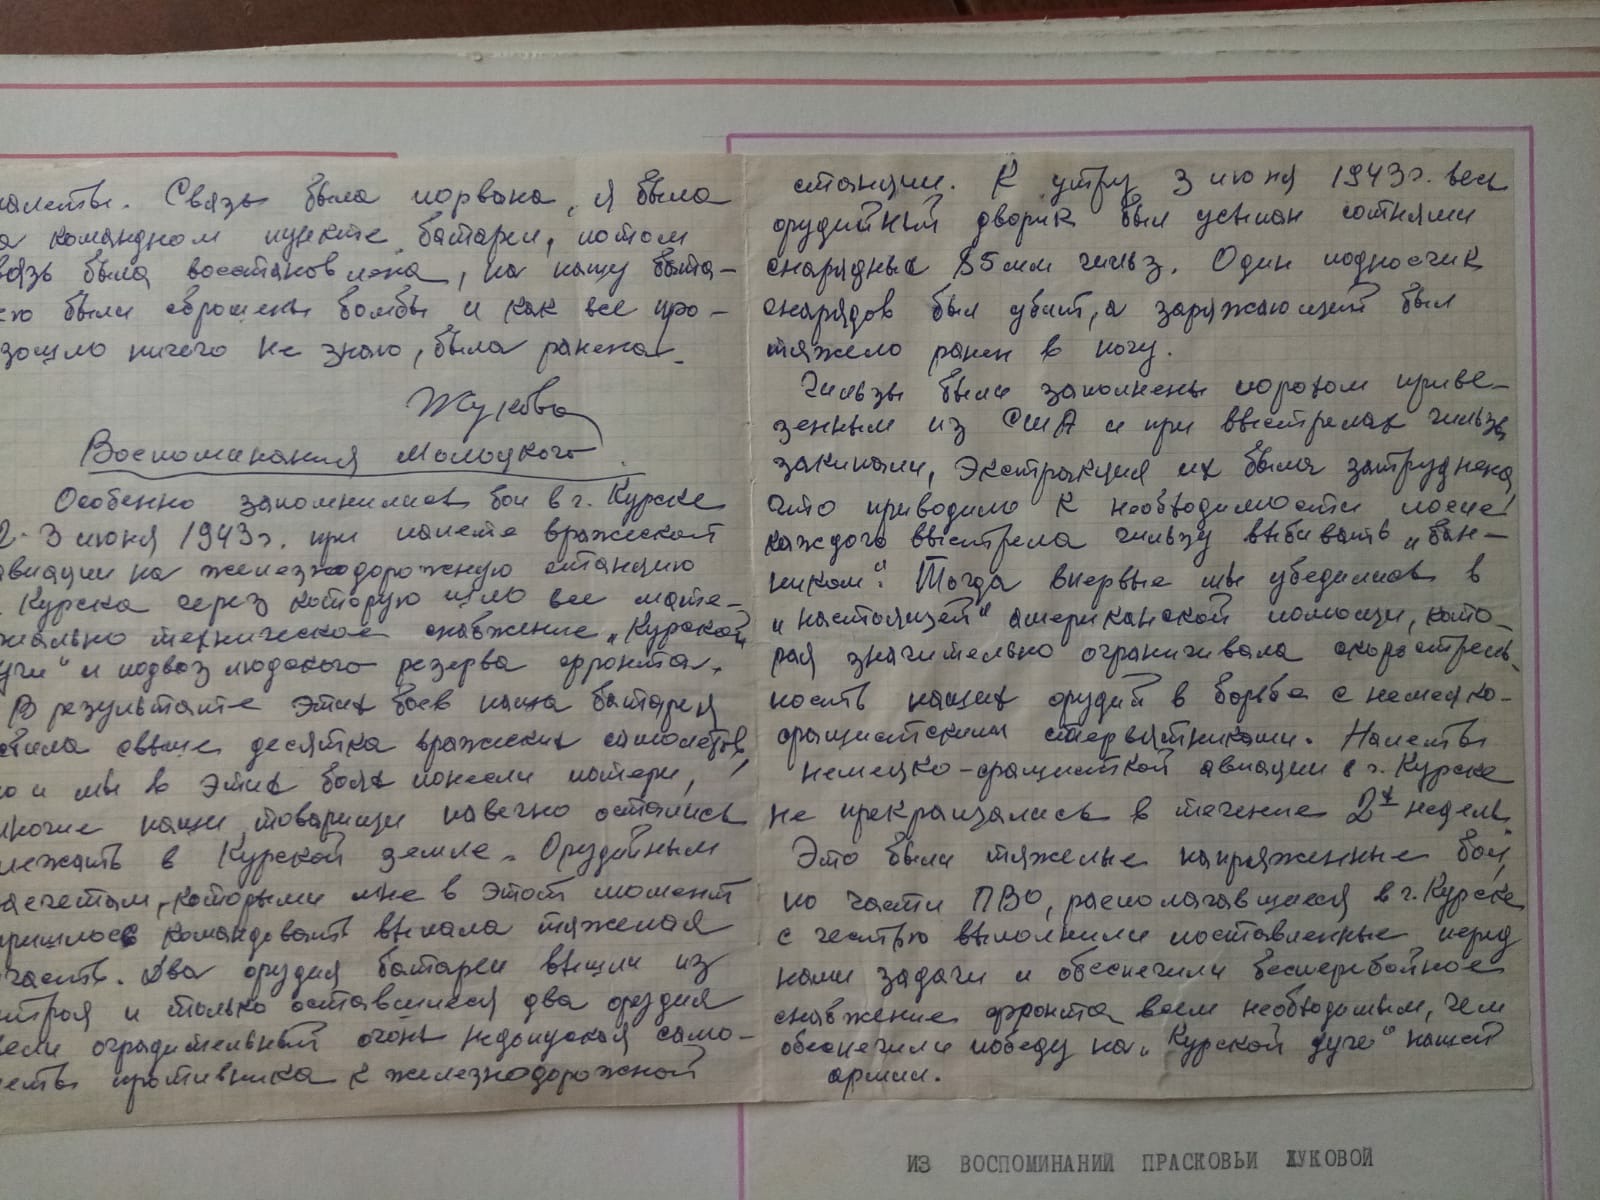 налеты. Связь была порвана, я была
на командном пункте батареи, потом
связь была восстановлена, на нашу бата-
рею были сброшены бомбы и как все про-
изошло ничего не знаю, была ранена.
Жукова
Воспоминания Молоцкого.
Особенно запомнились бои в г. Курске
2-3 июня 1943г. при налете вражеской
авиации на железнодорожную станцию
г. Курска через которую шло все мате-
риально техническое снабжение „Курской
дуги" и подвоз людского резерва фронта.
В результате этих боев наша батарея
сбила свыше десятка вражеских самолетов,
но и мы в этих боях понесли потери,
многие наши товарищи навечно остались
лежать в Курской земле. Орудийным
расчетам, которыми мне в этот момент
пришлось командовать выпала тяжелая
участь. Два орудия батареи вышли из
строя и только оставшиеся два орудия
вели оградительный огонь недопуская само-
леты противника к железнодорожной
станции. К утру 3 июня 1943г. весь
орудийный дворик был усыпан сотнями
снарядных 85мм гильз. Один подносчик
снарядов был убит, а заряжающий был
тяжело ранен в ногу.
Гильзы были заполнены порохом приве-
зенным из США и при выстрелах гильзы
закипали, экстракция их была затруднена,
что приводило к необходимости после
каждого выстрела гильзу выбивать „бан-
ником". Тогда впервые мы убедились в
„настоящей" американской помощи, кото-
рая значительно ограничивала скорострель-
ность наших орудий в борьбе с немецко-
фашистскими стервятниками. Налеты
немецко-фашисткой авиации в г. Курске
не прекращались в течение 2х недель.
Это были тяжелые напряженные бои,
но части ПВО, располагавшиеся в г. Курске
с честью выполнили поставленные перед
нами задачи и обеспечили бесперебойное
снабжение фронта всем необходимым, чем
обеспечили победу на „Курской дуге" нашей
армии.
ИЗ ВОСПОМИНАНИЙ ПРАСКОВЬИ ЖУКОВОЙ